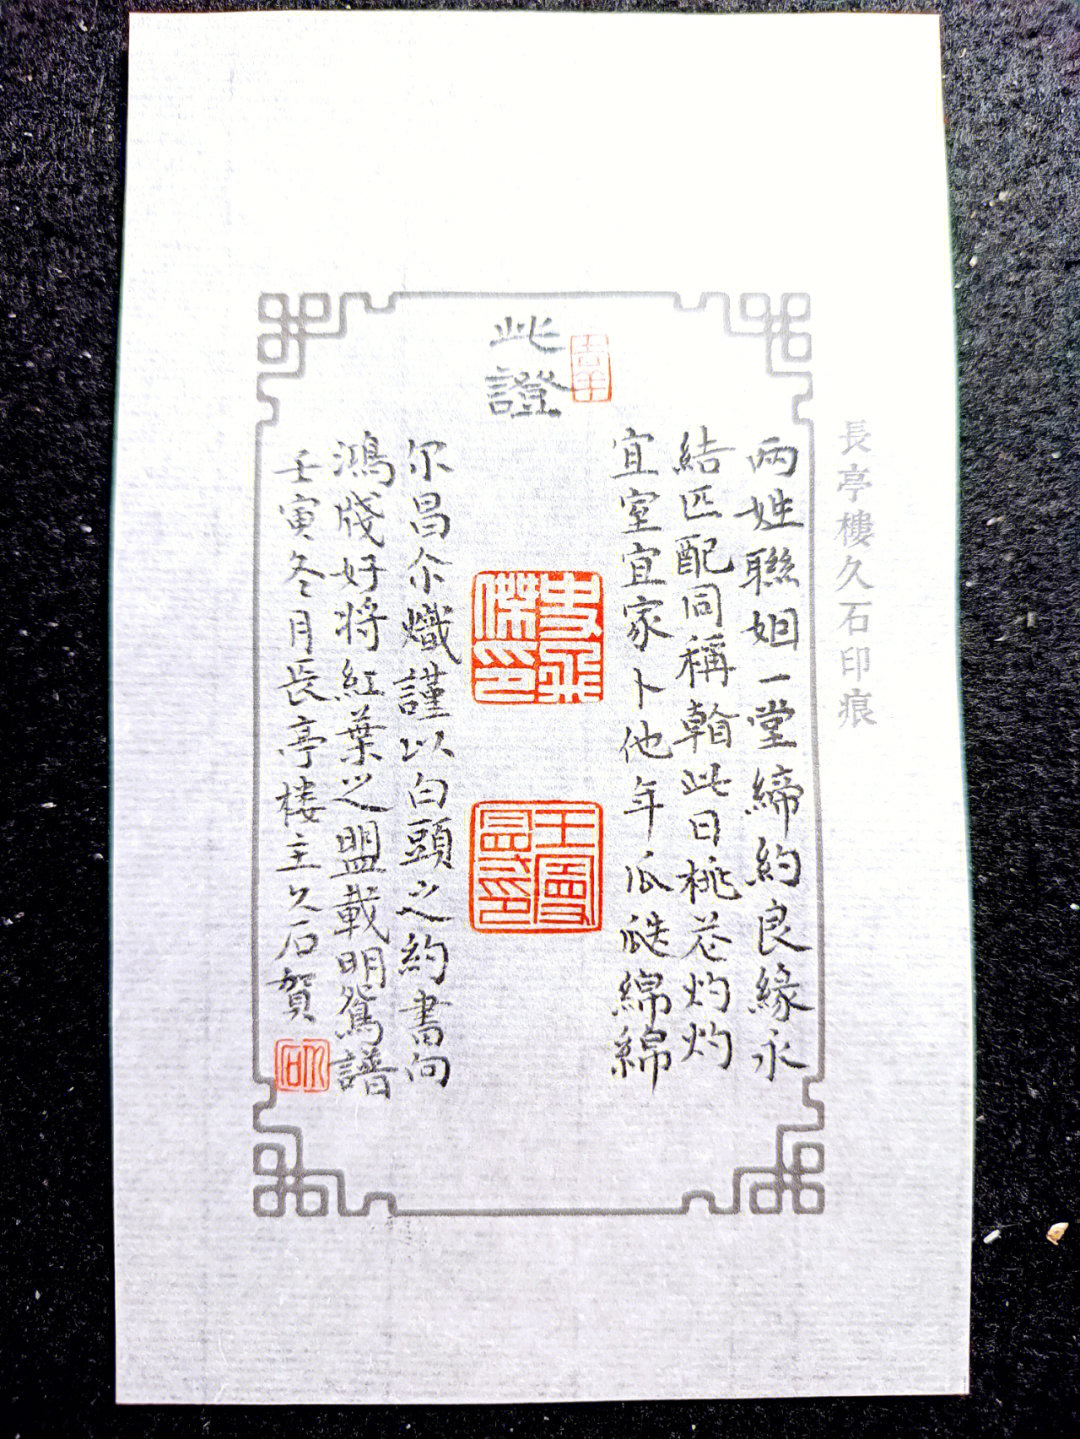 長亭樓久石印痕
此證
吉羊
兩姓聯姻一堂締約良緣永
結匹配同稱此日桃花灼灼
宜室宜家卜他年瓜瓞綿綿
史飛傑印
尔昌尒熾謹以白頭之約書向
鴻牋好將紅葉之盟載明鴛譜
壬寅冬月長亭楼主久石賀
久石